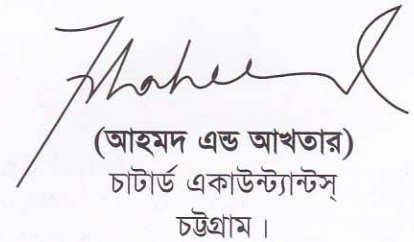 (আহমদ এন্ড আখতার)
চাটার্ড একাউন্ট্যান্টস্
চট্টগ্রাম।